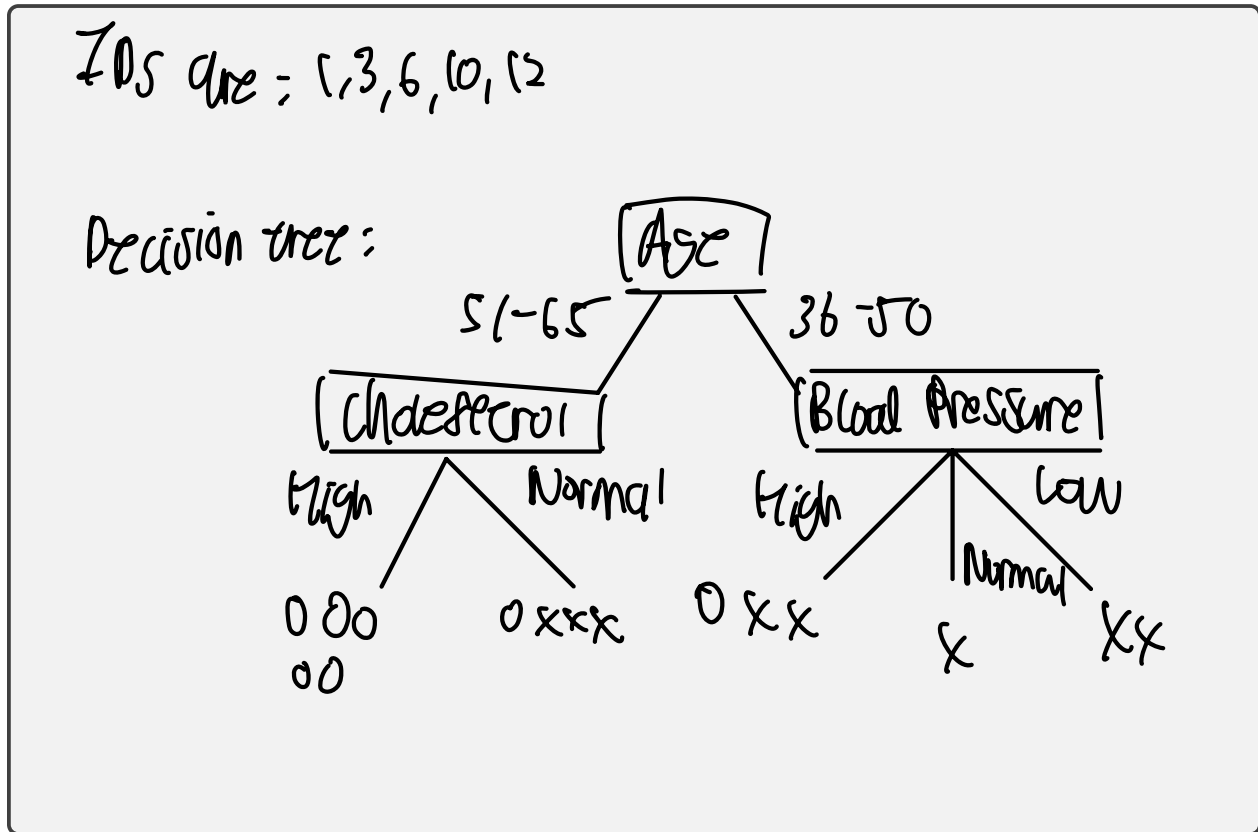 IDs are: 1,3,6,10,12
Decision tree:
Age
51-65
36-50
Cholesterol
Blood Pressure
High
Normal
High
Normal
Low
0 00
00
0 xxx
0 xx
x
xx